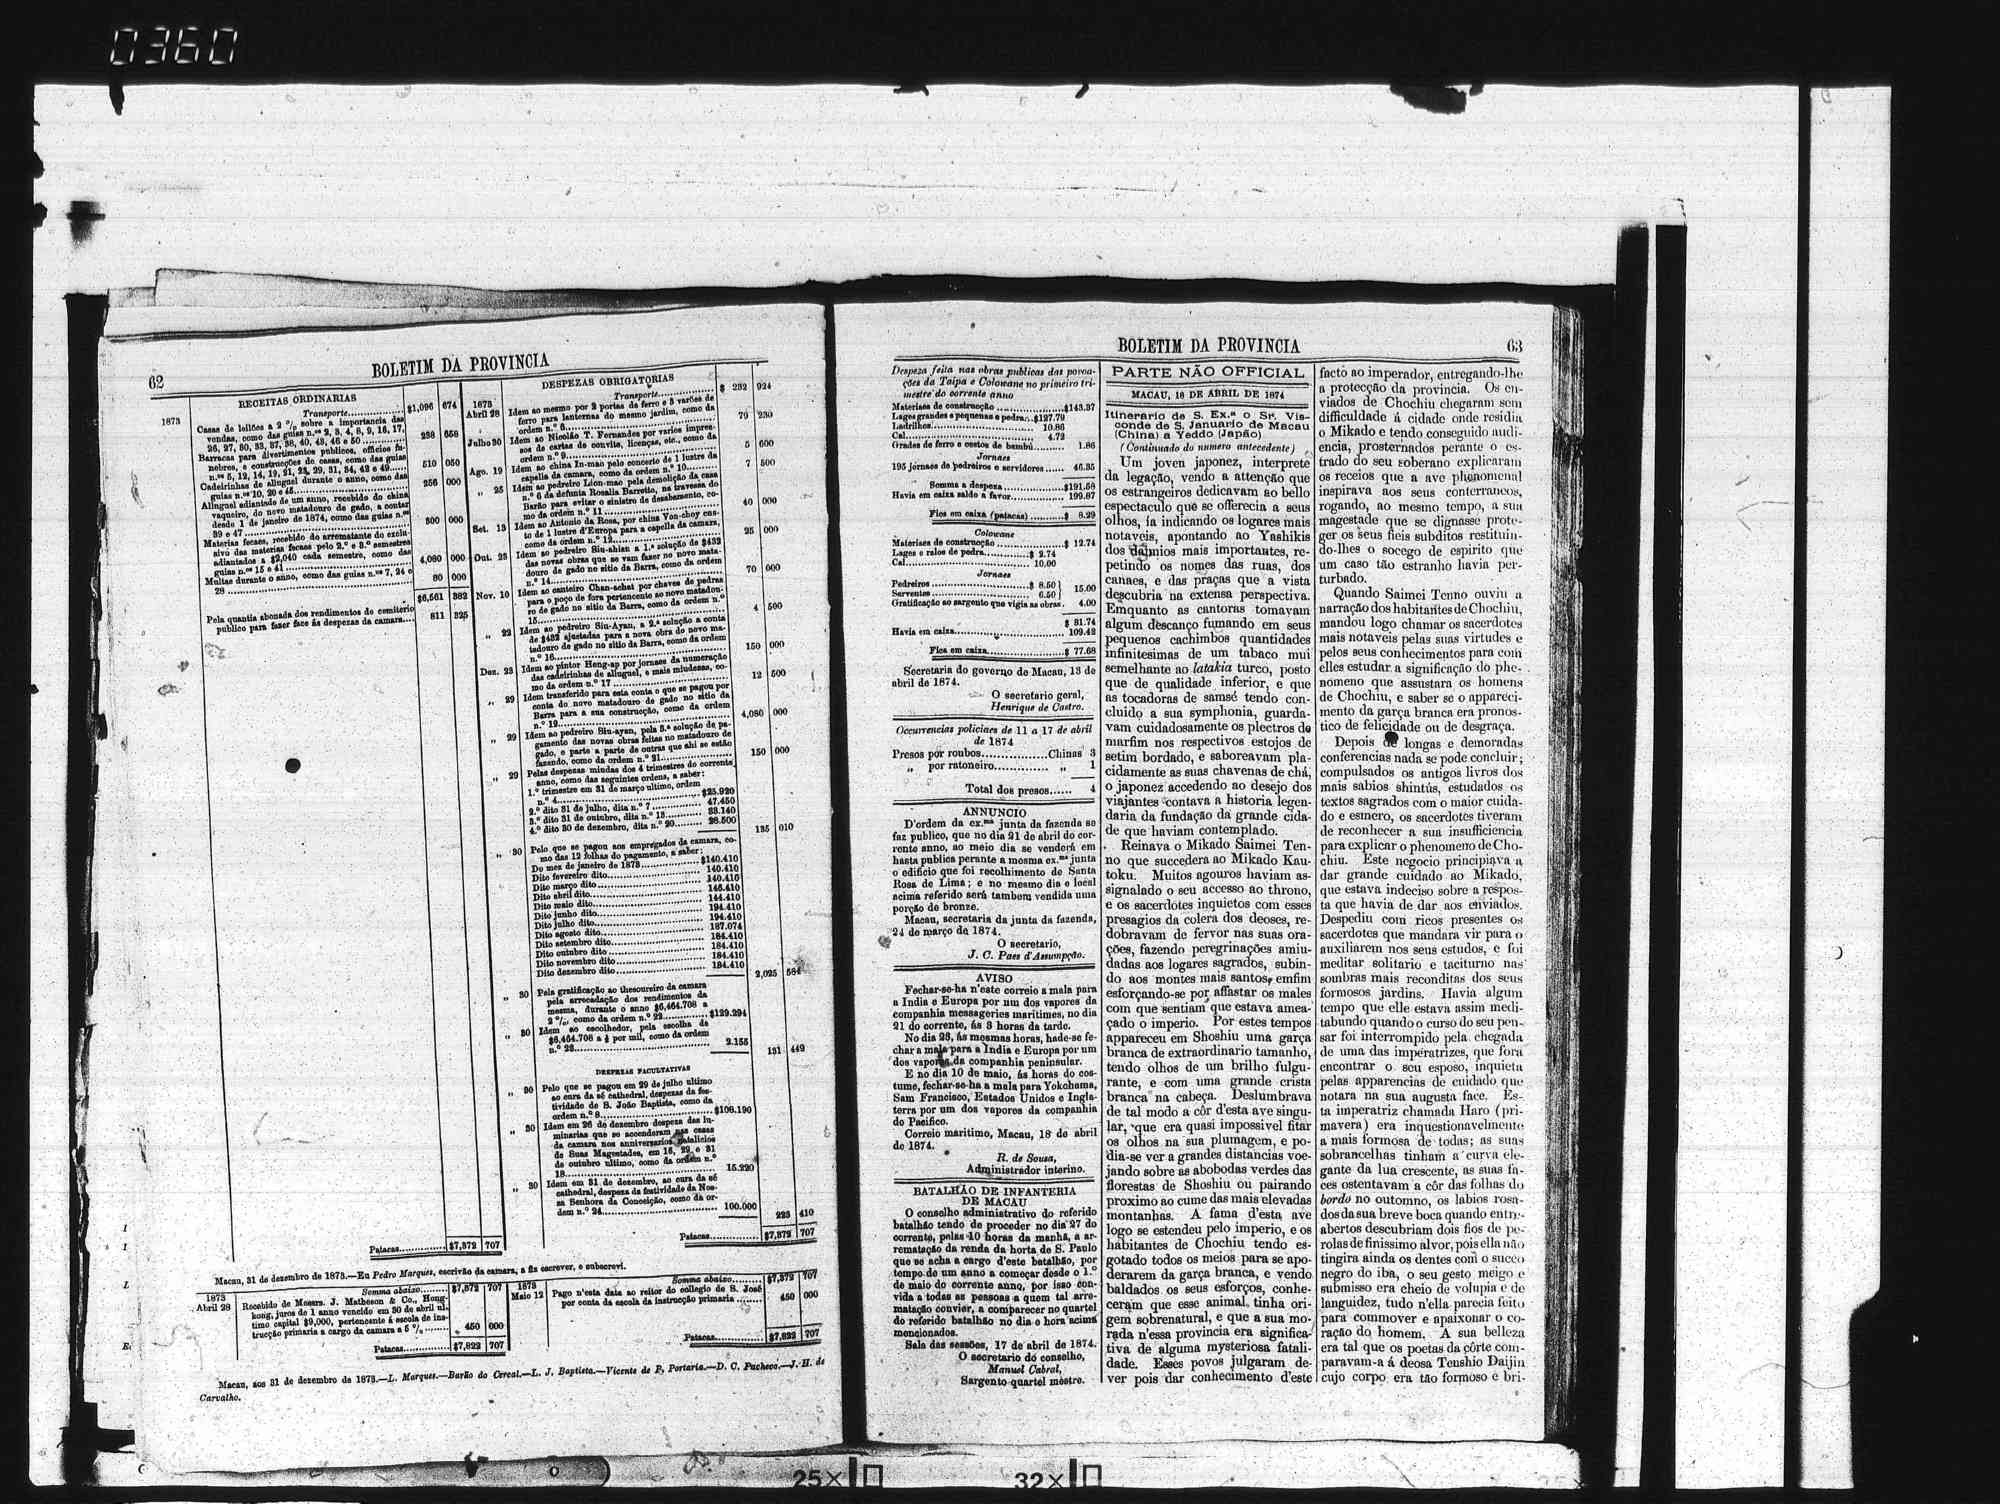 0360
62
BOLETIM DA PROVINCIA
RECEITAS ORDINARIAS
1873
Transporte............ $1,096 674
Casas de leilões a 2 % sobre a importancia das
vendas, como das guias n.os 2, 3, 4, 8, 9, 16, 17,
26, 27, 30, 33, 37, 38, 40, 43, 46 e 50 ............ 238 658
Barracas para divertimentos publicos, officios fu-
nebres, e construcções de casas, como das guias
n.os 5, 12, 14, 19, 21, 23, 29, 31, 34, 42 e 49..... 510 050
Cadeirinhas de aluguel durante o anno, como das
guias n.os 10, 20 e 45............ 256 000
Alluguel adiantado de um anno, recebido do china
vaqueiro, do novo matadouro de gado, a contar
desde 1 de janeiro de 1874, como das guias n.os
39 e 47............ 300 000
Materias fecaes, recebido do arrematante do exclu-
sivo das materias fecaes pelo 2.º e 3.º semestres
adiantados a $2,040 cada semestre, como das
guias n.os 15 e 41............ 4,080 000
Multas durante o anno, como das guias n.os 7, 24 e
28............ 80 000
$6,561 382
Pela quantia abonada dos rendimentos do cemiterio
publico para fazer face ás despezas da camara.... 811 325
Patacas............ $7,372 707
DESPEZAS OBRIGATORIAS
1873
Transporte............ $ 232 924
Abril 28 Idem ao mesmo por 2 portas de ferro e 3 varões de
ferro para lanternas do mesmo jardim, como da
ordem n.º 8............ 79 230
Julho 30 Idem ao Nicolão T. Fernandes por varios impres-
sos de cartas de convite, licenças, etc., como da
ordem n.º 9............ 5 600
Ago. 19 Idem ao china In-mao pelo concerto de 1 lustre da
capella da camara, como da ordem n.º 10............ 7 500
„ 25 Idem ao pedreiro Lion-mao pela demolição da casa
n.º 6 da defunta Rosalia Barretto, na travessa do
Barão para evitar o sinistro de desabamento, co-
mo da ordem n.º 11............ 40 000
Set. 13 Idem ao Antonio da Rosa, por china Von-choy cus-
to de 1 lustre d'Europa para a capella da camara,
como da ordem n.º 12............ 25 000
Out. 23 Idem ao pedreiro Siu-ahian a 1.ª solução de $432
das novas obras que se vam fazer no novo mata-
douro de gado no sitio da Barra, como da ordem
n.º 14............ 70 000
Nov. 10 Idem ao canteiro Chan-achai por chaves de pedras
para o poço de fora pertencente ao novo matadou-
ro de gado no sitio da Barra, como da ordem n.º
15............ 4 500
„ 22 Idem ao pedreiro Siu-Ayan, a 2.ª solução a conta
de $432 ajustadas para a nova obra do novo ma-
tadouro de gado no sitio da Barra, como da ordem
n.º 16............ 150 000
Dez. 23 Idem ao pintor Heng-ap por jornaes da numeração
das cadeirinhas de alluguel, e mais miudezas, co-
mo da ordem n.º 17............ 12 500
„ 29 Idem transferido para esta conta o que se pagou por
conta do novo matadouro de gado no sitio da
Barra para a sua construcção, como da ordem
n.º 19............ 4,080 000
„ 29 Idem ao pedreiro Siu-ayan, pela 3.ª solução de pa-
gamento das novas obras feitas no matadouro de
gado, e parte a parte de outras que ahi se estão
fazendo, como da ordem n.º 21............ 150 000
„ 29 Pelas despezas miudas dos 4 trimestres do corrente
anno, como das seguintes ordens, a saber:
1.º trimestre em 31 de março ultimo, ordem
n.º 4............ $25.920
2.º dito 31 de julho, dita n.º 7............ 47.450
3.º dito 31 de outubro, dita n.º 13.......... 33.140
4.º dito 30 de dezembro, dita n.º 20........ 28.500
135 010
„ 30 Pelo que se pagou aos empregados da camara, co-
mo das 12 folhas do pagamento, a saber:
Do mez de janeiro de 1873............ $140.410
Dito fevereiro dito............ 140.410
Dito março dito............ 140.410
Dito abril dito............ 146.410
Dito maio dito............ 144.410
Dito junho dito............ 194.410
Dito julho dito............ 194.410
Dito agosto dito............ 187.074
Dito setembro dito............ 184.410
Dito outubro dito............ 184.410
Dito novembro dito............ 184.410
Dito dezembro dito............ 184.410
2,025 584
„ 30 Pela gratificação ao thesoureiro da camara
pela arrecadação dos rendimentos da
mesma, durante o anno $6,464.708 a
2 %, como da ordem n.º 22............ $129.294
„ 30 Idem ao escolhedor, pela escolha de
$6,464.708 a ⅓ por mil, como da ordem
n.º 23............ 2.155
131 449
DESPEZAS FACULTATIVAS
„ 30 Pelo que se pagou em 29 de julho ultimo
ao cura da sé cathedral, despezas da fes-
tividade de S. João Baptista, como da
ordem n.º 8............ $108.190
„ 30 Idem em 26 de dezembro despeza das lu-
minarias que se accenderam nas casas
da camara nos anniversarios natalicios
de Suas Magestades, em 16, 29 e 31
de outubro ultimo, como da ordem n.º
18............ 15.220
„ 30 Idem em 31 de dezembro, ao cura da sé
cathedral, despeza da festividade da Nos-
sa Senhora da Conceição, como da or-
dem n.º 24............ 100.000
223 410
Patacas............ $7,372 707
Macau, 31 de dezembro de 1873.—Eu Pedro Marques, escrivão da camara, a fiz escrever, e subscrevi.
1873
Somma abaixo......... $7,372 707
Abril 28 Recebido de Messrs. J. Matheson & Co., Hong-
kong, juros de 1 anno vencido em 30 de abril ul-
timo capital $9,000, pertencente á escola de ins-
trucção primaria a cargo da camara a 5 %....... 450 000
Patacas............ $7,822 707
1873
Somma abaixo......... $7,372 707
Maio 12 Pago n'esta data ao reitor do collegio de S. José
por conta da escola da instrucção primaria....... 450 000
Patacas............ $7,822 707
Macau, aos 31 de dezembro de 1873.—L. Marques.—Barão do Cercal.—L. J. Baptista.—Vicente de P. Portaria.—D. C. Pacheco.—J. H. de
Carvalho.
BOLETIM DA PROVINCIA
63
Despeza feita nas obras publicas das povoa-
ções da Taipa e Colowane no primeiro tri-
mestre do corrente anno
Materiaes de construcção............$143.37
Lages grandes e pequenas e pedra..$127.79
Ladrilhos............ 10.86
Cal............ 4.72
Grades de ferro e cestos de bambú...... 1.86
Jornaes
195 jornaes de pedreiros e servidores...... 46.35
Somma a despeza............$191.58
Havia em caixa saldo a favor............ 199.87
Fica em caixa (patacas)..........$ 8.29
Colowane
Materiaes de construcção............$ 12.74
Lages e ralos de pedra.........$ 2.74
Cal............ 10.00
Jornaes
Pedreiros............$ 8.50
Serventes............ 6.50 } 15.00
Gratificação ao sargento que vigia as obras. 4.00
$ 31.74
Havia em caixa............ 109.42
Fica em caixa............$ 77.68
Secretaria do governo de Macau, 13 de
abril de 1874.
O secretario geral,
Henrique de Castro.
Occurrencias policiaes de 11 a 17 de abril
de 1874
Presos por roubos..............Chinas 3
„ por ratoneiro.............. „ 1
Total dos presos...... 4
ANNUNCIO
D'ordem da ex.ma junta da fazenda se
faz publico, que no dia 21 de abril do cor-
rente anno, ao meio dia se venderá em
hasta publica perante a mesma ex.ma junta
o edificio que foi recolhimento de Santa
Rosa de Lima; e no mesmo dia e local
acima referido será tambem vendida uma
porção de bronze.
Macau, secretaria da junta da fazenda,
24 de março de 1874.
O secretario,
J. C. Paes d'Assumpção.
AVISO
Fechar-se-ha n'este correio a mala para
a India e Europa por um dos vapores da
companhia messageries maritimes, no dia
21 do corrente, ás 3 horas da tarde.
No dia 28, ás mesmas horas, hade-se fe-
char a mala para a India e Europa por um
dos vapores da companhia peninsular.
E no dia 10 de maio, ás horas do cos-
tume, fechar-se-ha a mala para Yokohama,
Sam Francisco, Estados Unidos e Ingla-
terra por um dos vapores da companhia
do Pacifico.
Correio maritimo, Macau, 18 de abril
de 1874.
R. de Sousa,
Administrador interino.
BATALHÃO DE INFANTERIA
DE MACAU
O conselho administrativo do referido
batalhão tendo de proceder no dia 27 do
corrente, pelas 10 horas da manhã, a ar-
rematação da renda da horta de S. Paulo
que se acha a cargo d'este batalhão, por
tempo de um anno a começar desde o 1.º
de maio do corrente anno, por isso con-
vida a todas as pessoas a quem tal arre-
matação convier, a comparecer no quartel
do referido batalhão no dia e hora acima
mencionados.
Sala das sessões, 17 de abril de 1874.
O secretario do conselho,
Manuel Cabral,
Sargento quartel mestre.
PARTE NÃO OFFICIAL
MACAU, 18 DE ABRIL DE 1874
Itinerario de S. Ex.a o Sr. Vis-
conde de S. Januario de Macau
(China) a Yeddo (Japão)
(Continuado do numero antecedente)
Um joven japonez, interprete
da legação, vendo a attenção que
os estrangeiros dedicavam ao bello
espectaculo que se offerecia a seus
olhos, ía indicando os logares mais
notaveis, apontando ao Yashikis
dos daimios mais importantes, re-
petindo os nomes das ruas, dos
canaes, e das praças que a vista
descubria na extensa perspectiva.
Emquanto as cantoras tomavam
algum descanço fumando em seus
pequenos cachimbos quantidades
infinitesimas de um tabaco mui
semelhante ao latakia turco, posto
que de qualidade inferior, e que
as tocadoras de samsé tendo con-
cluido a sua symphonia, guarda-
vam cuidadosamente os plectros de
marfim nos respectivos estojos de
setim bordado, e saboreavam pla-
cidamente as suas chavenas de chá,
o japonez accedendo ao desejo dos
viajantes contava a historia legen-
daria da fundação da grande cida-
de que haviam contemplado.
Reinava o Mikado Saimei Ten-
no que succedera ao Mikado Kau-
toku. Muitos agouros haviam as-
signalado o seu accesso ao throno,
e os sacerdotes inquietos com esses
presagios da colera dos deoses, re-
dobravam de fervor nas suas ora-
ções, fazendo peregrinações amiu-
dadas aos logares sagrados, subin-
do aos montes mais santos, emfim
esforçando-se por affastar os males
com que sentiam que estava amea-
çado o imperio. Por estes tempos
appareceu em Shoshiu uma garça
branca de extraordinario tamanho,
tendo olhos de um brilho fulgu-
rante, e com uma grande crista
branca na cabeça. Deslumbrava
de tal modo a côr d'esta ave singu-
lar, que era quasi impossivel fitar
os olhos na sua plumagem, e po-
dia-se ver a grandes distancias voe-
jando sobre as abobodas verdes das
florestas de Shoshiu ou pairando
proximo ao cume das mais elevadas
montanhas. A fama d'esta ave
logo se estendeu pelo imperio, e os
habitantes de Chochiu tendo es-
gotado todos os meios para se apo-
derarem da garça branca, e vendo
baldados os seus esforços, conhe-
ceram que esse animal tinha ori-
gem sobrenatural, e que a sua mo-
rada n'essa provincia era significa-
tiva de alguma mysteriosa fatali-
dade. Esses povos julgaram de-
ver pois dar conhecimento d'este
facto ao imperador, entregando-lhe
a protecção da provincia. Os en-
viados de Chochiu chegaram sem
difficuldade á cidade onde residia
o Mikado e tendo conseguido audi-
encia, prosternados perante o es-
trado do seu soberano explicaram
os receios que a ave phenomenal
inspirava aos seus conterraneos,
rogando, ao mesmo tempo, a sua
magestade que se dignasse prote-
ger os seus fieis subditos restituin-
do-lhes o socego de espirito que
um caso tão estranho havia per-
turbado.
Quando Saimei Tenno ouviu a
narração dos habitantes de Chochiu,
mandou logo chamar os sacerdotes
mais notaveis pelas suas virtudes e
pelos seus conhecimentos para com
elles estudar a significação do phe-
nomeno que assustara os homens
de Chochiu, e saber se o appareci-
mento da garça branca era pronos-
tico de felicidade ou de desgraça.
Depois de longas e demoradas
conferencias nada se pode concluir;
compulsados os antigos livros dos
mais sabios shintús, estudados os
textos sagrados com o maior cuida-
do e esmero, os sacerdotes tiveram
de reconhecer a sua insufficiencia
para explicar o phenomeno de Cho-
chiu. Este negocio principiava a
dar grande cuidado ao Mikado,
que estava indeciso sobre a respos-
ta que havia de dar aos enviados.
Despediu com ricos presentes os
sacerdotes que mandara vir para o
auxiliarem nos seus estudos, e foi
meditar solitario e taciturno nas
sombras mais reconditas dos seus
formosos jardins. Havia algum
tempo que elle estava assim medi-
tabundo quando o curso do seu pen-
sar foi interrompido pela chegada
de uma das imperatrizes, que fora
encontrar o seu esposo, inquieta
pelas apparencias de cuidado que
notara na sua augusta face. Es-
ta imperatriz chamada Haro (pri-
mavera) era inquestionavelmente
a mais formosa de todas; as suas
sobrancelhas tinham a curva ele-
gante da lua crescente, as suas fa-
ces ostentavam a côr das folhas do
bordo no outomno, os labios rosa-
dos da sua breve boca quando entre-
abertos descubriam dois fios de pe-
rolas de finissimo alvor, pois ella não
tingira ainda os dentes com o succo
negro do iba, o seu gesto meigo e
submisso era cheio de volupia e de
languidez, tudo n'ella parecia feito
para commover e apaixonar o co-
ração do homem. A sua belleza
era tal que os poetas da côrte com-
paravam-a á deosa Tenshio Daijin
cujo corpo era tão formoso e bri-
25×
32×